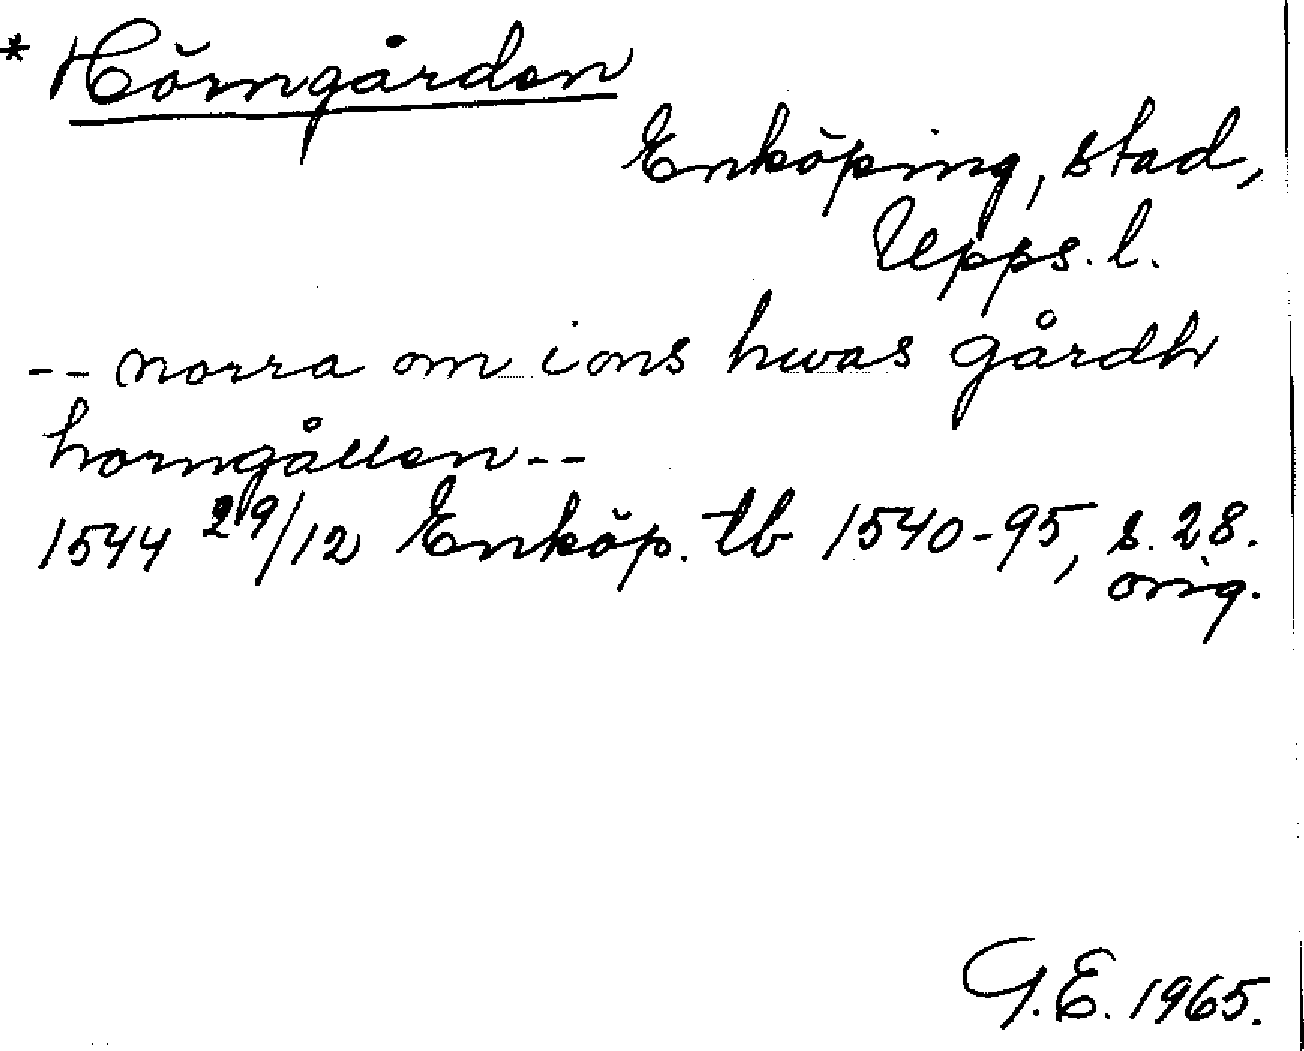 * Hörngården
Enköping, stad,
Upps. l.
-- norra om ions hwas gårdh
horngållen --
1544 29/12 Enköp. tb 1540-95, s. 28.
orig.
G.E. 1965.